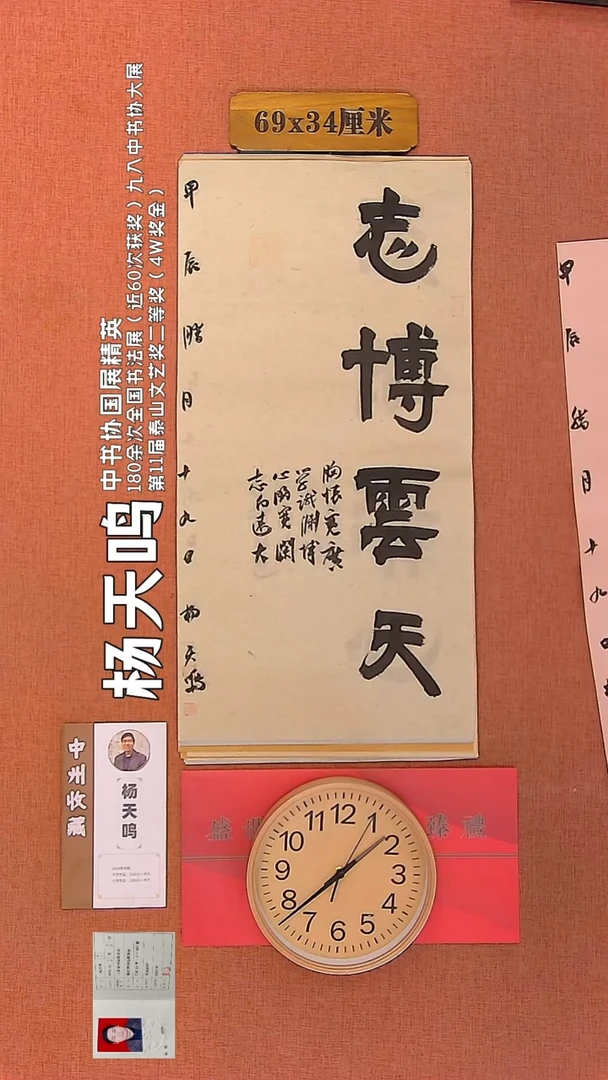 69x34厘米
志博雲天
胸懷寬廣
学識淵博
心胸寬闊
志向遠大
甲辰腊月十九日 楊天鳴
甲辰腊月十九日
中书协国展精英
180余次全国书法展（近60次获奖）九八中书协大展
第11届泰山文艺奖二等奖（4W奖金）
杨天鸣
杨天鸣
盛 臻禮
12 1 2 3 4 5 6 7 8 9 10 11